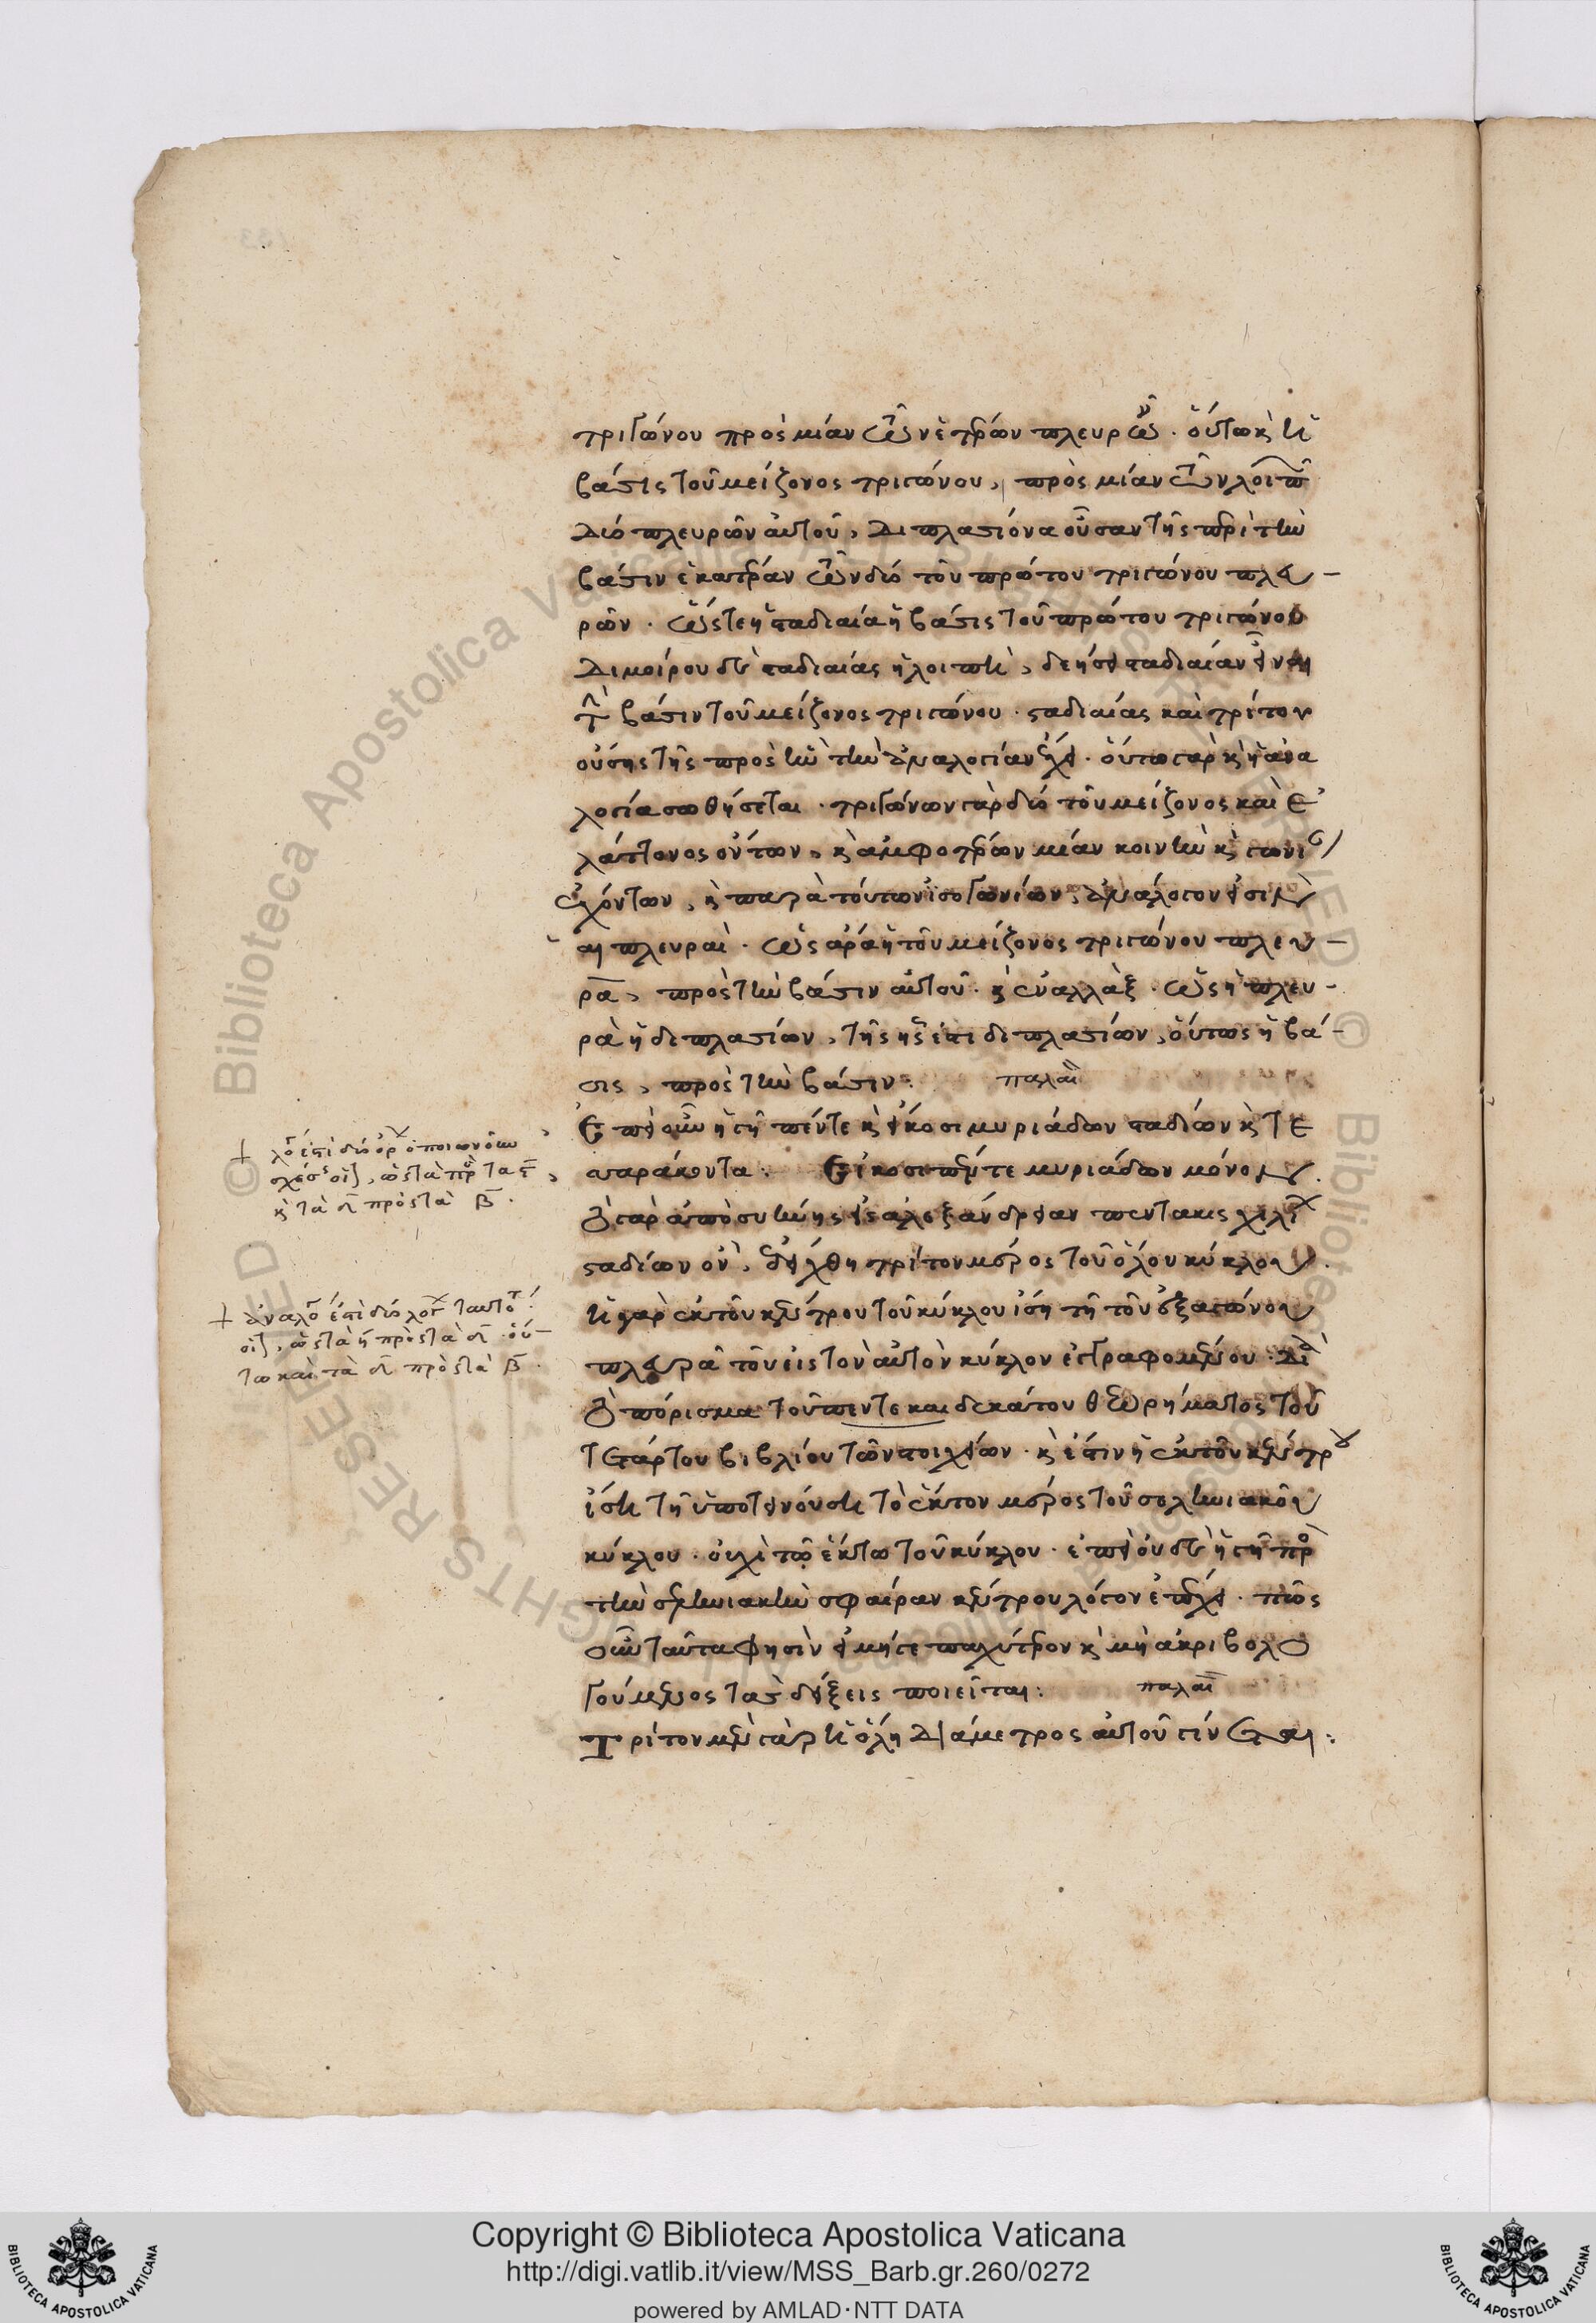 τριγώνου πρὸς μίαν τῶν ἑτέρων πλευρῶν. οὕτω καὶ ἡ
βάσις τοῦ μείζονος τριγώνου, πρὸς μίαν τῶν λοιπῶν
δύο πλευρῶν αὐτοῦ, διπλασίονα οὖσαν τῆς περὶ τὴν
βάσιν ἑκατέραν τῶν δύο τοῦ πρώτου τριγώνου πλευ-
ρῶν. ὥστε ἡ σταδιαία ἡ βάσις τοῦ πρώτου τριγώνου
διμοίρου δὲ σταδιαίας ἡ λοιπὴ, δεήσει σταδιαίαν εἶναι
τὴν βάσιν τοῦ μείζονος τριγώνου. σταδιαίας καὶ τρίτον
οὔσης τῆς πρὸς ἣν τὴν ἀναλογίαν ἔχει. οὕτω γὰρ καὶ ἡ ἀνα
λογία σωθήσεται. τριγώνων γὰρ δύο τοῦ μείζονος καὶ ἐ
λάττονος ὄντων, καὶ ἀμφοτέρων μίαν κοινὴν καὶ γωνί
ἐχόντων, καὶ παρὰ τούτων ἰσογωνίων, ἀνάλογον εἰσὶ
αἱ πλευραὶ. ὡς ἄρα ἡ τοῦ μείζονος τριγώνου πλευ-
ρα, πρὸς τὴν βάσιν αὐτοῦ. καὶ ἐναλλὰξ. ὡς ἡ πλευ-
ρὰ ἡ διπλασίων, τῆς ἧς ἐστι διπλασίων, οὕτως ἡ βά-
σις, πρὸς τὴν βάσιν. παλαι
Ἐπεὶ οὖν ἡ γῆ πέντε καὶ εἴκοσι μυριάδων σταδίων καὶ τε
σαράκοντα: Εἴκοσι πέντε μυριάδων μόνον.
τὸ γὰρ ἀπὸ συήνης εἰς ἀλεξάνδρειαν πεντακισχιλί
σταδίων ὂν, ἐδείχθη τρίτον μέρος τοῦ ὅλου κύκλου.
ἡ γὰρ ἐκ τοῦ κέντρου τοῦ κύκλου ἴση τῇ τοῦ ἑξαγώνου
πλευρᾶ τοῦ εἰς τὸν αὐτὸν κύκλον ἐγγραφομένου. διὰ
τὸ πόρισμα τοῦ πεντεκαιδεκάτου θεωρήματος τοῦ
τετάρτου βιβλίου τῶν στοιχείων. καὶ ἔστιν ἡ ἐκ τοῦ κέντρου
ἴση τῇ ὑποτεινούσῃ τὸ ἕκτον μέρος τοῦ σεληνιακοῦ
κύκλου. οὐχὶ τῷ ἕκτω τοῦ κύκλου. ἐπεὶ οὐδὲ ἡ γῆ πρὸς
τὴν σεληνιακὴν σφαίραν κέντρου λόγον ἐπέχει. πῶς
οὖν ταῦτα φησὶν εἰ μήτε παχύτερον καὶ μὴ ἀκριβολο
γούμενος τὰς δείξεις ποιεῖται: παλαι
Τρίτον μὲν γὰρ ἡ ὅλη διάμετρος αὐτοῦ γίνεται:
ὡς τὰ πρὸς τὰ
καὶ τὰ δ πρὸς τὰ β.
ὡς τὰ η πρὸς τὰ δ. οὕ-
τω καὶ τὰ δ πρὸς τὰ β.
Copyright © Biblioteca Apostolica Vaticana
http://digi.vatlib.it/view/MSS_Barb.gr.260/0272
powered by AMLAD·NTT DATA